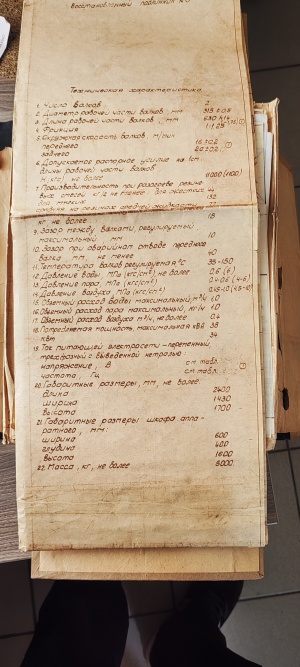 Восстановленный подлинник
Техническая характеристика
1. Число валков 2
2. Диаметр рабочей части валков, мм 315±0,8
3. Длина рабочей части валков, мм 630
4. Фрикция
5. Окружная скорость валков, м/мин
переднего
заднего
6. Допускаемое распорное усилие на 1см
длины рабочей части валков
Н (кгс), не более 11000 (1100)
7. Производительность при разогреве резино-
вых смесей кг/ч не менее: для жестких 44
для мягких 132
кг, не более 18
9. Зазор между валками, регулируемый
максимальный мм 10
10. Зазор при аварийном отводе переднего
валка мм, не менее 40
11. Температура валков регулируемая °С
12. Давление воды, МПа (кгс/см²), не более 0,6 (6)
13. Давление пара, МПа (кгс/см²)
14. Давление воздуха МПа (кгс/см²)
15. Объемный расход воды максимальный, м³/ч 1,0
16. Объемный расход пара максимальный,
17. Объемный расход воздуха м³/ч, не более 0,4
18. Потребляемая мощность максимальная кВА 38
кВт 34
19. Ток питающей электросети – переменный
трехфазный с выведенной нетралью
напряжение, В см табл.
частота, Гц см табл.
20. Габаритные размеры, мм, не более:
длина 2400
ширина 1430
высота 1700
21. Габаритные размеры шкафа аппа-
ратного, мм:
ширина 600
глубина 400
высота 1600
22. Масса, кг, не более 5000